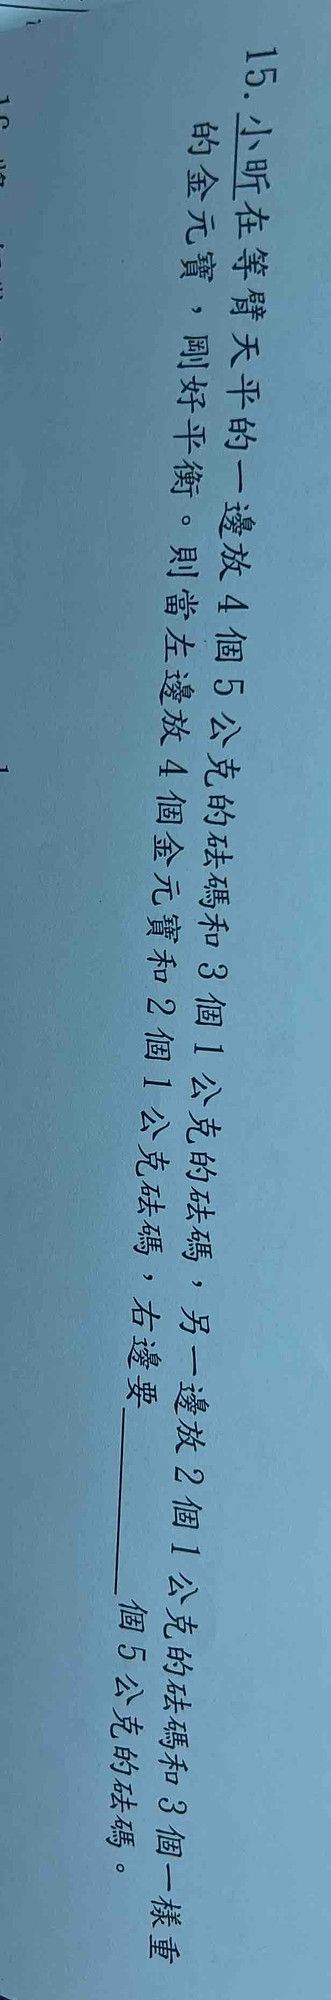 15. 小昕在等臂天平的一邊放 4 個 5 公克的砝碼和 3 個 1 公克的砝碼，另一邊放 2 個 1 公克的砝碼和 3 個一樣重
的金元寶，剛好平衡。則當左邊放 4 個金元寶和 2 個 1 公克砝碼，右邊要________個 5 公克的砝碼。